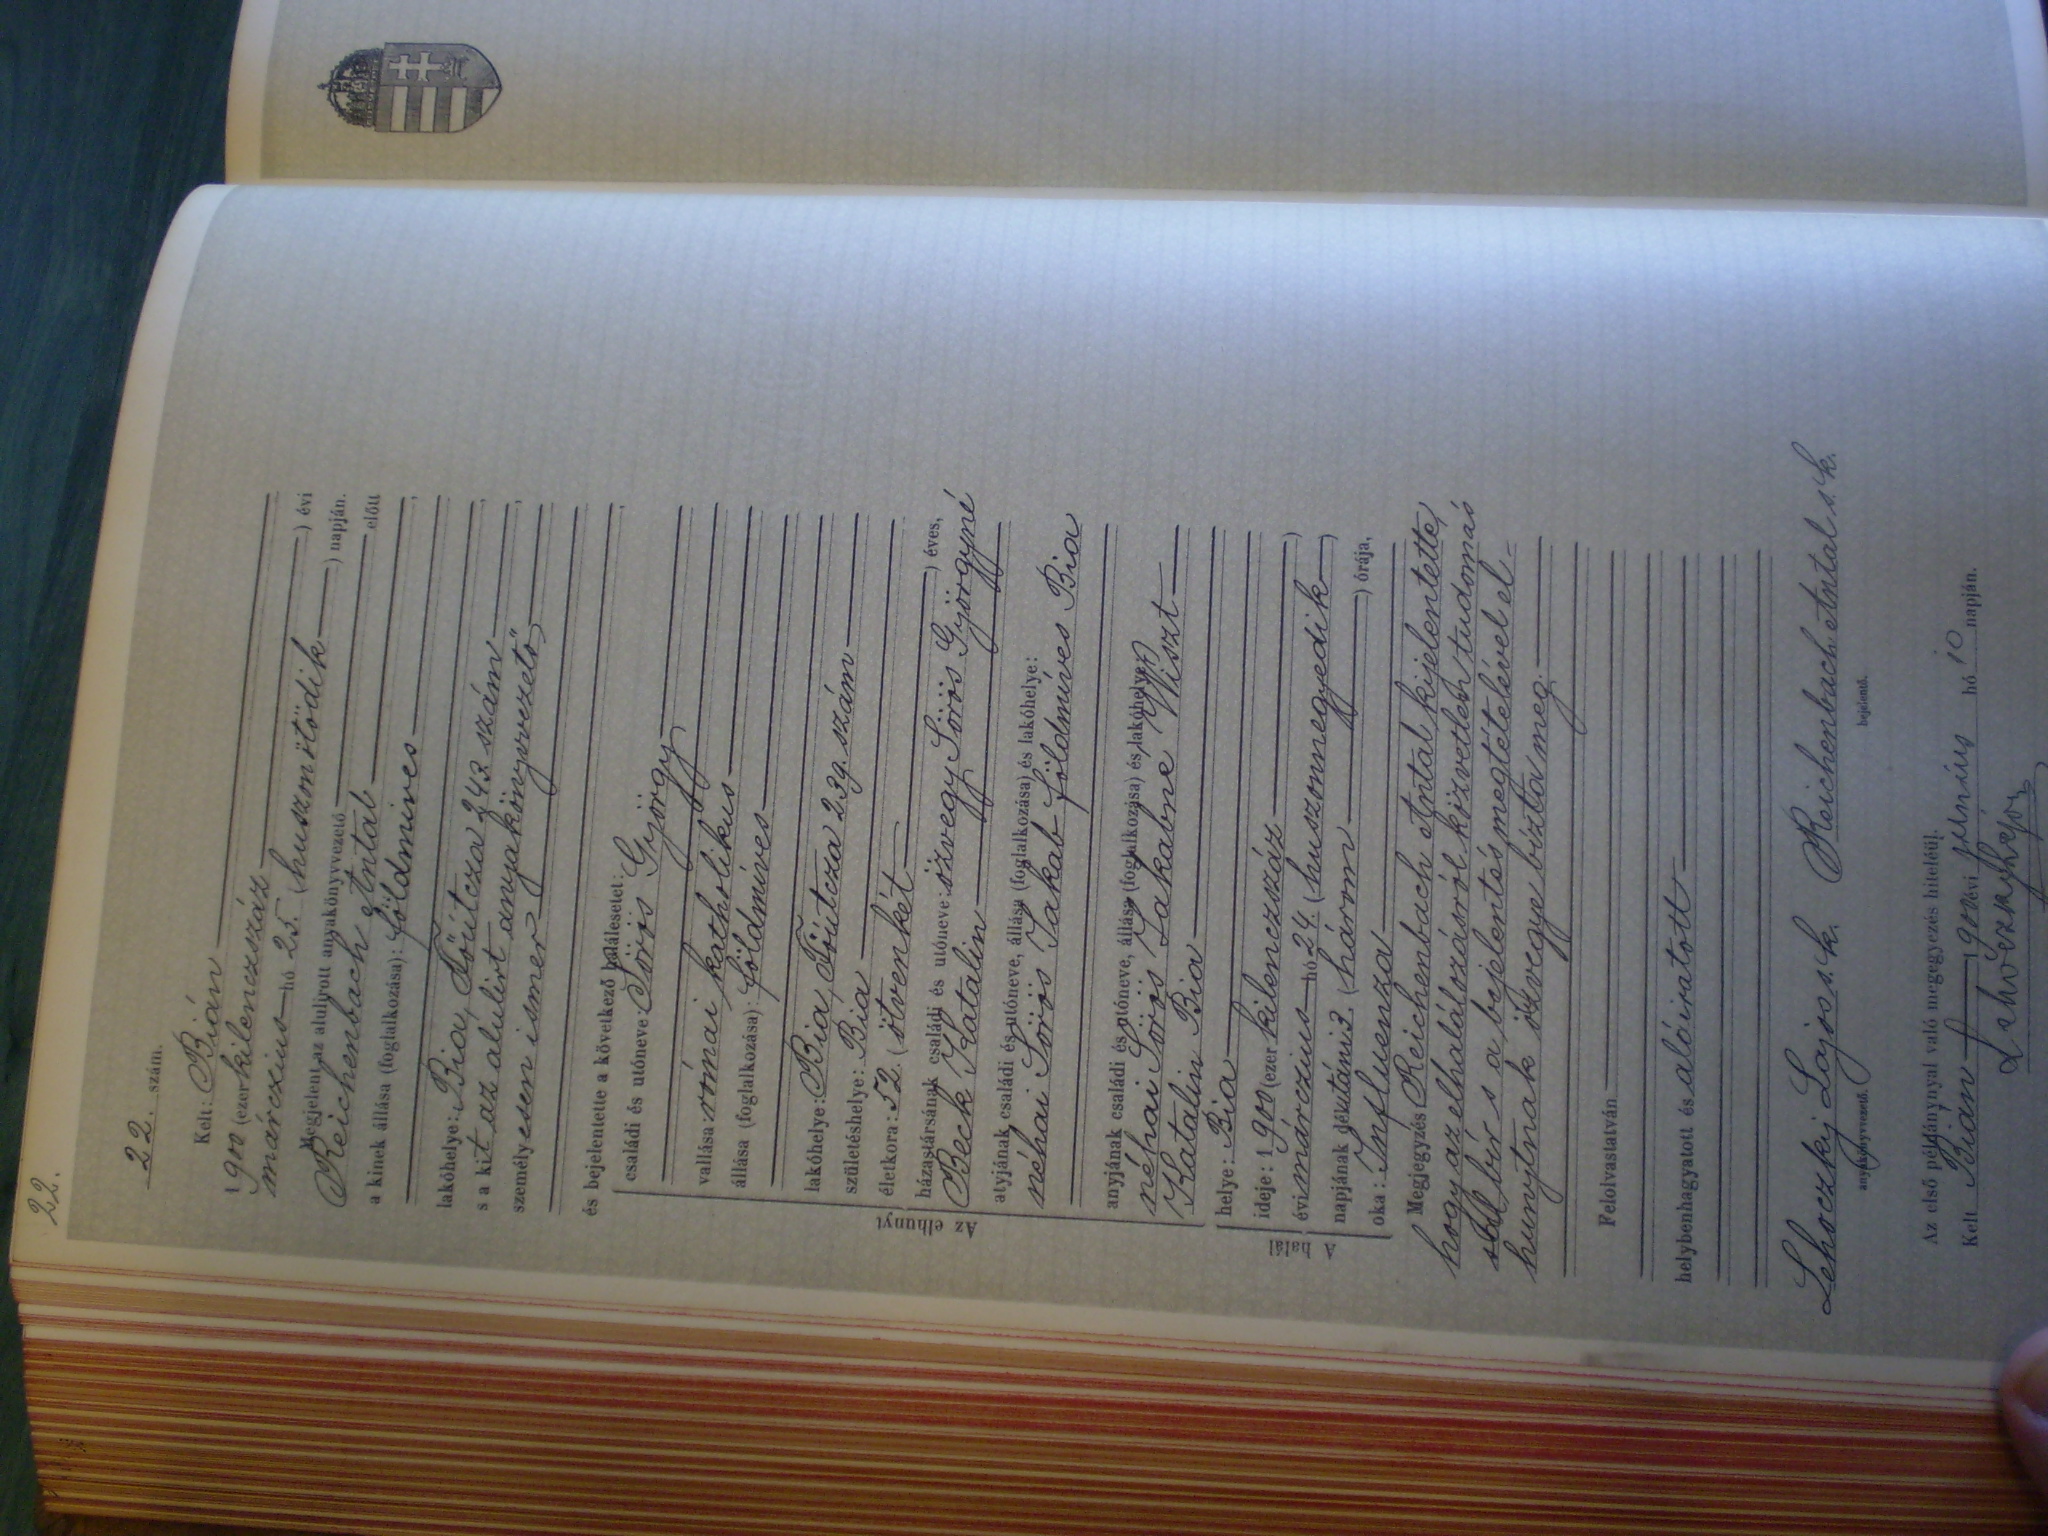 22.
22. szám.
Kelt: Bián
1900 (ezer kilenczszáz) évi
márczius hó 25. (huszonötödik) napján.
Megjelent az alulírott anyakönyvvezető előtt
Reichenbach Antal
a kinek állása (foglalkozása): földmíves,
lakóhelye: Bia, Főútcza 243. szám,
s a kit az alulirt anyakönyvvezető,
személyesen ismer
és bejelentette a következő halálesetet:
Az elhunyt
családi és utóneve: Sörös György
vallása római katholikus
állása (foglalkozása): földmíves
lakóhelye: Bia, Főútcza 239. szám
születéshelye: Bia
életkora: 52. (ötvenkét) éves,
házastársának családi és utóneve: özvegy Sörös Györgyné
Beck Katalin
atyjának családi és utóneve, állása (foglalkozása) és lakóhelye:
néhai Sörös Jakab földmíves Bia
anyjának családi és utóneve, állása (foglalkozása) és lakóhelye:
néhai Sörös Jakabné Wiszt
Katalin Bia
A halál
helye: Bia
ideje: 1900 (ezer kilenczszáz)
évi márczius hó 24. (huszonnegyedik)
napjának délutáni 3. (három) órája,
oka: Influenza
Megjegyzés Reichenbach Antal kijelentette,
hogy az elhalálozásról közvetlen tudomás
sal bír s a bejelentés megtételével el-
hunytnak özvegye bízta meg.
Felolvastatván
helybenhagyatott és aláíratott
Lehoczky Lajos s. k. Reichenbach Antal s. k.
anyakönyvvezető. bejelentő.
Az első példánnyal való megegyezés hiteléül.
Kelt Bián 1900 évi hó 10 napján.